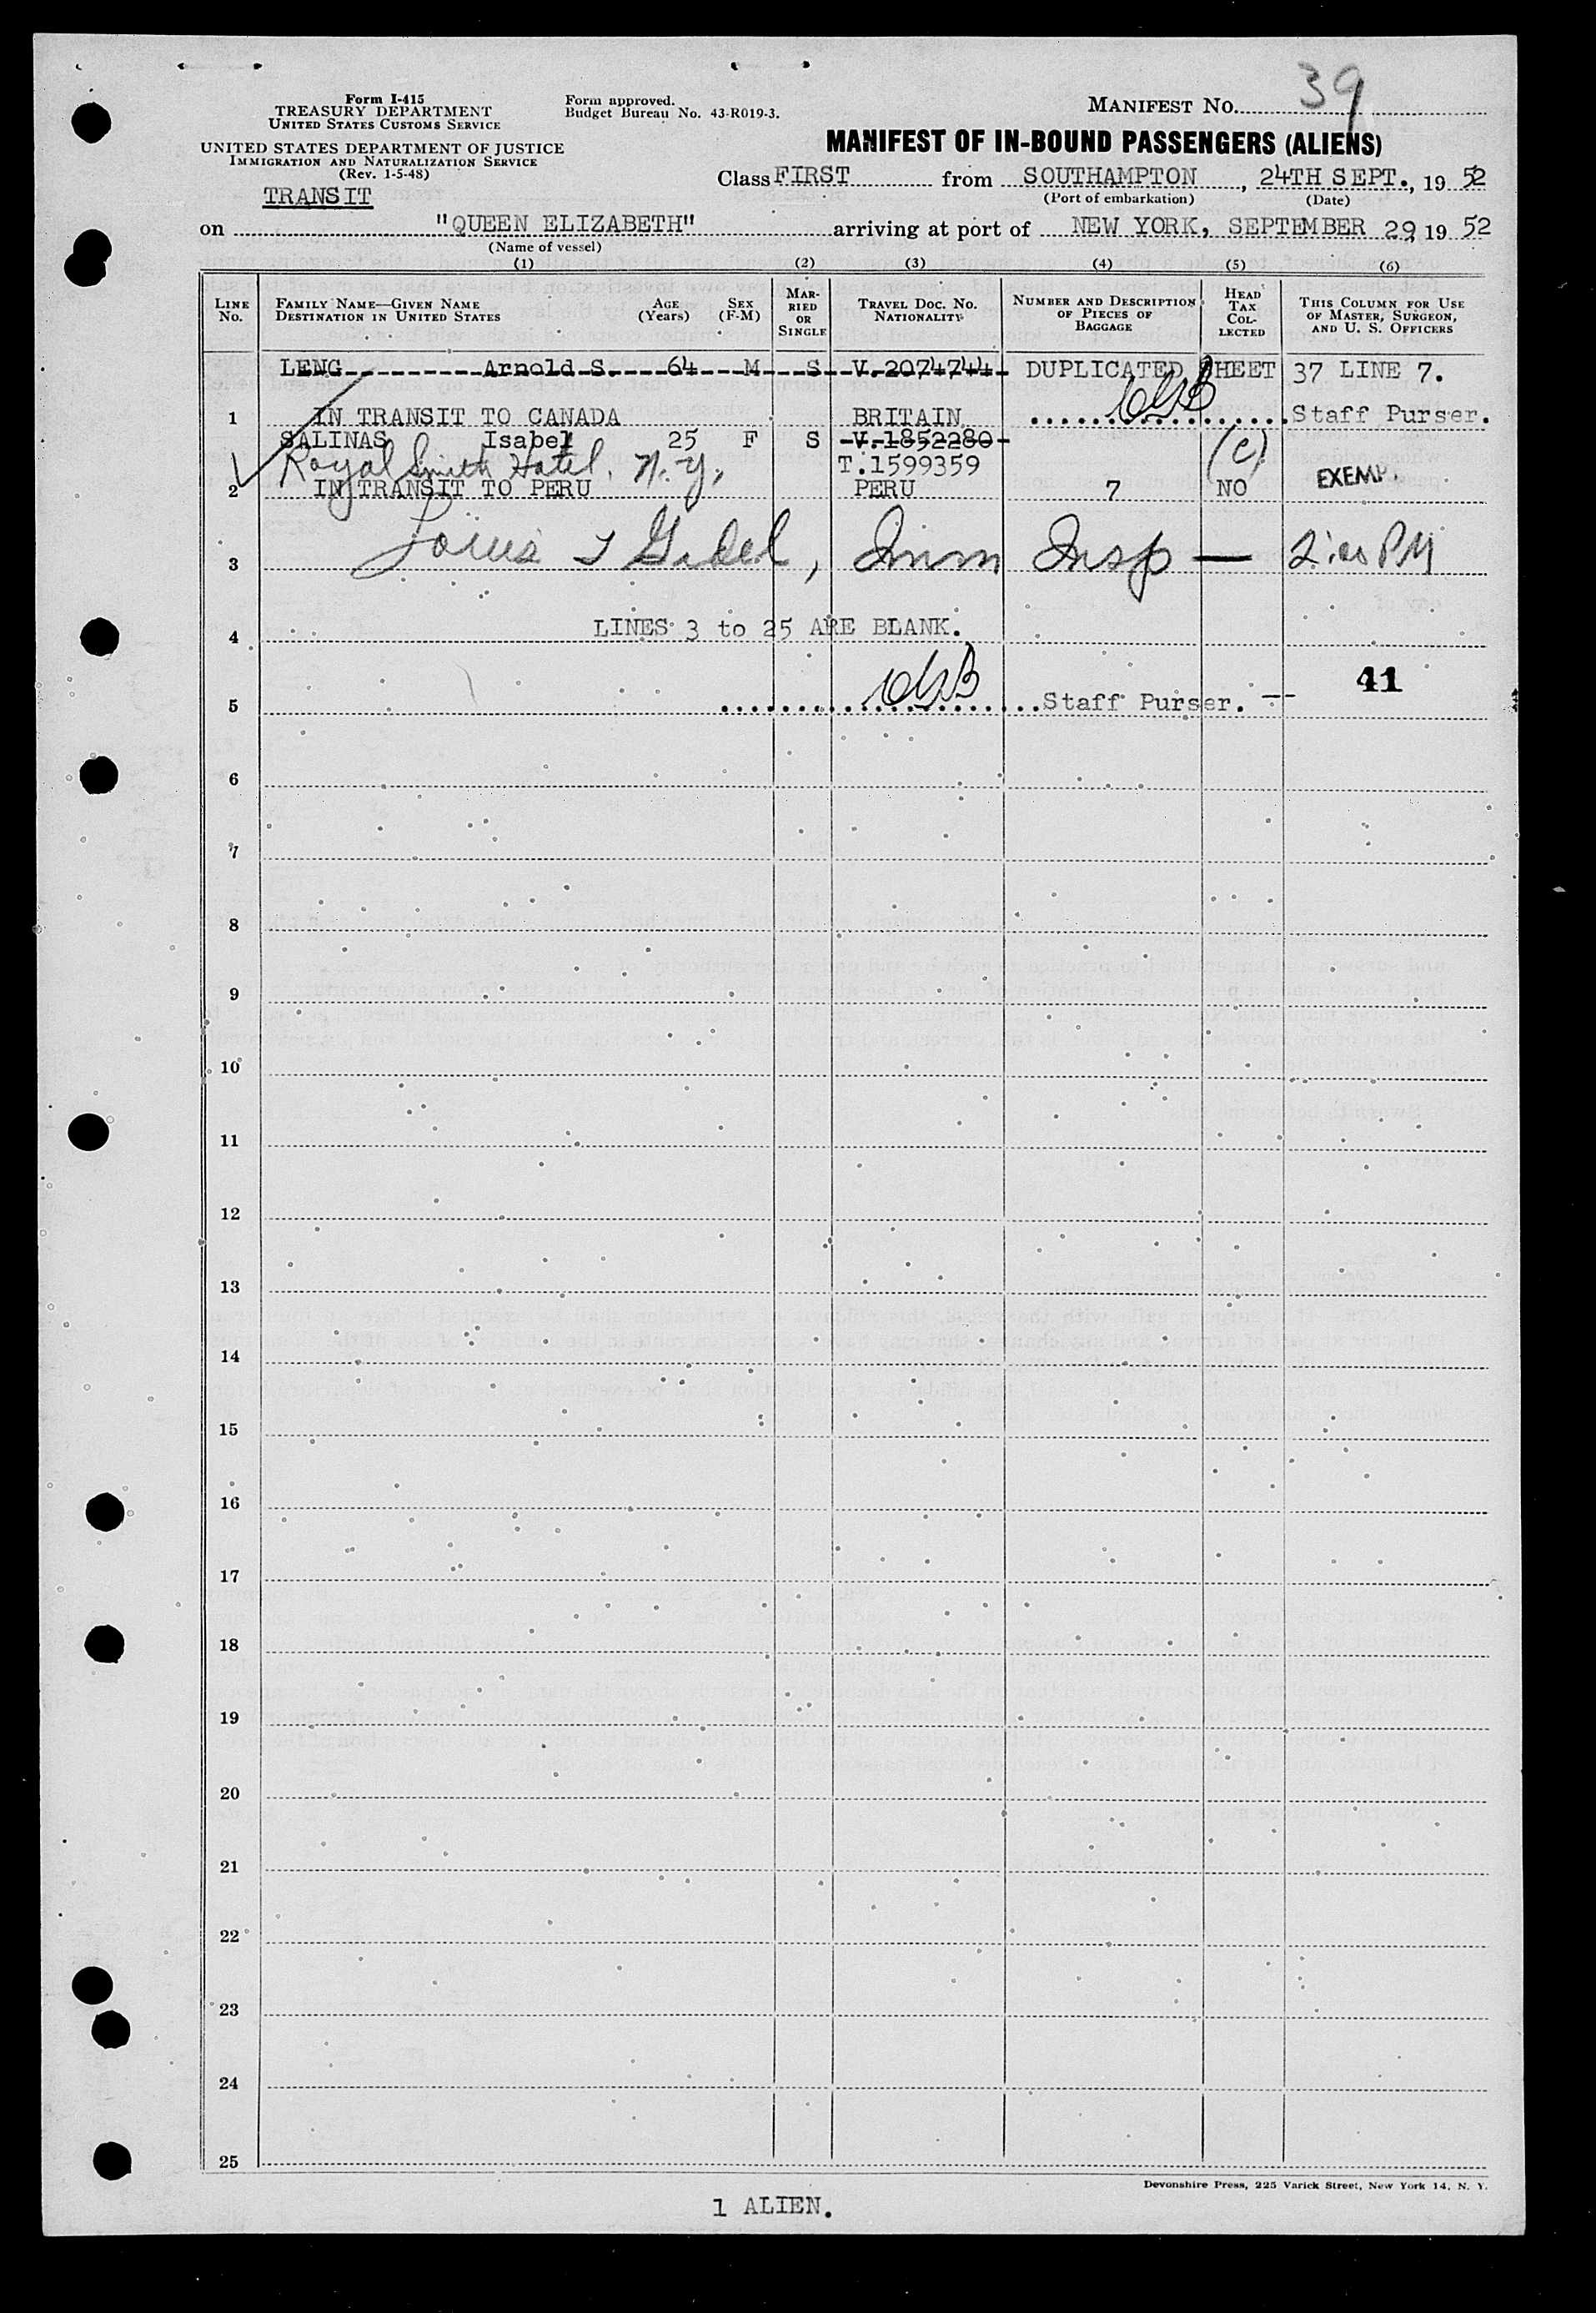 Form I-415
TREASURY DEPARTMENT
UNITED STATES CUSTOMS SERVICE
UNITED STATES DEPARTMENT OF JUSTICE
IMMIGRATION AND NATURALIZATION SERVICE
(Rev. 1-5-48)
TRANSIT
Form approved.
Budget Bureau No. 43-R019-3.
MANIFEST No. 39
MANIFEST OF IN-BOUND PASSENGERS (ALIENS)
Class FIRST from SOUTHAMPTON, 24TH SEPT., 19 52
(Port of embarkation) (Date)
on "QUEEN ELIZABETH" arriving at port of NEW YORK, SEPTEMBER 29 19 52
(Name of vessel)
(1) (2) (3) (4) (5) (6)
LINE No. FAMILY NAME—GIVEN NAME DESTINATION IN UNITED STATES AGE (Years) SEX (F-M) MARRIED OR SINGLE TRAVEL DOC. NO. NATIONALITY NUMBER AND DESCRIPTION OF PIECES OF BAGGAGE HEAD TAX COLLECTED THIS COLUMN FOR USE OF MASTER, SURGEON, AND U. S. OFFICERS
LENG Arnold S. 64 M S V.2074744 DUPLICATED SHEET 37 LINE 7.
1 IN TRANSIT TO CANADA BRITAIN Staff Purser.
SALINAS Isabel 25 F S V.1852280
Royal Hotel, N.Y. T.1599359 (C)
2 IN TRANSIT TO PERU PERU 7 NO EXEMP.
3 Louis Imm Insp —
4 LINES 3 to 25 ARE BLANK.
41
5 Staff Purser. --
6
7
8
9
10
11
12
13
14
15
16
17
18
19
20
21
22
23
24
25
Devonshire Press, 225 Varick Street, New York 14, N. Y.
1 ALIEN.